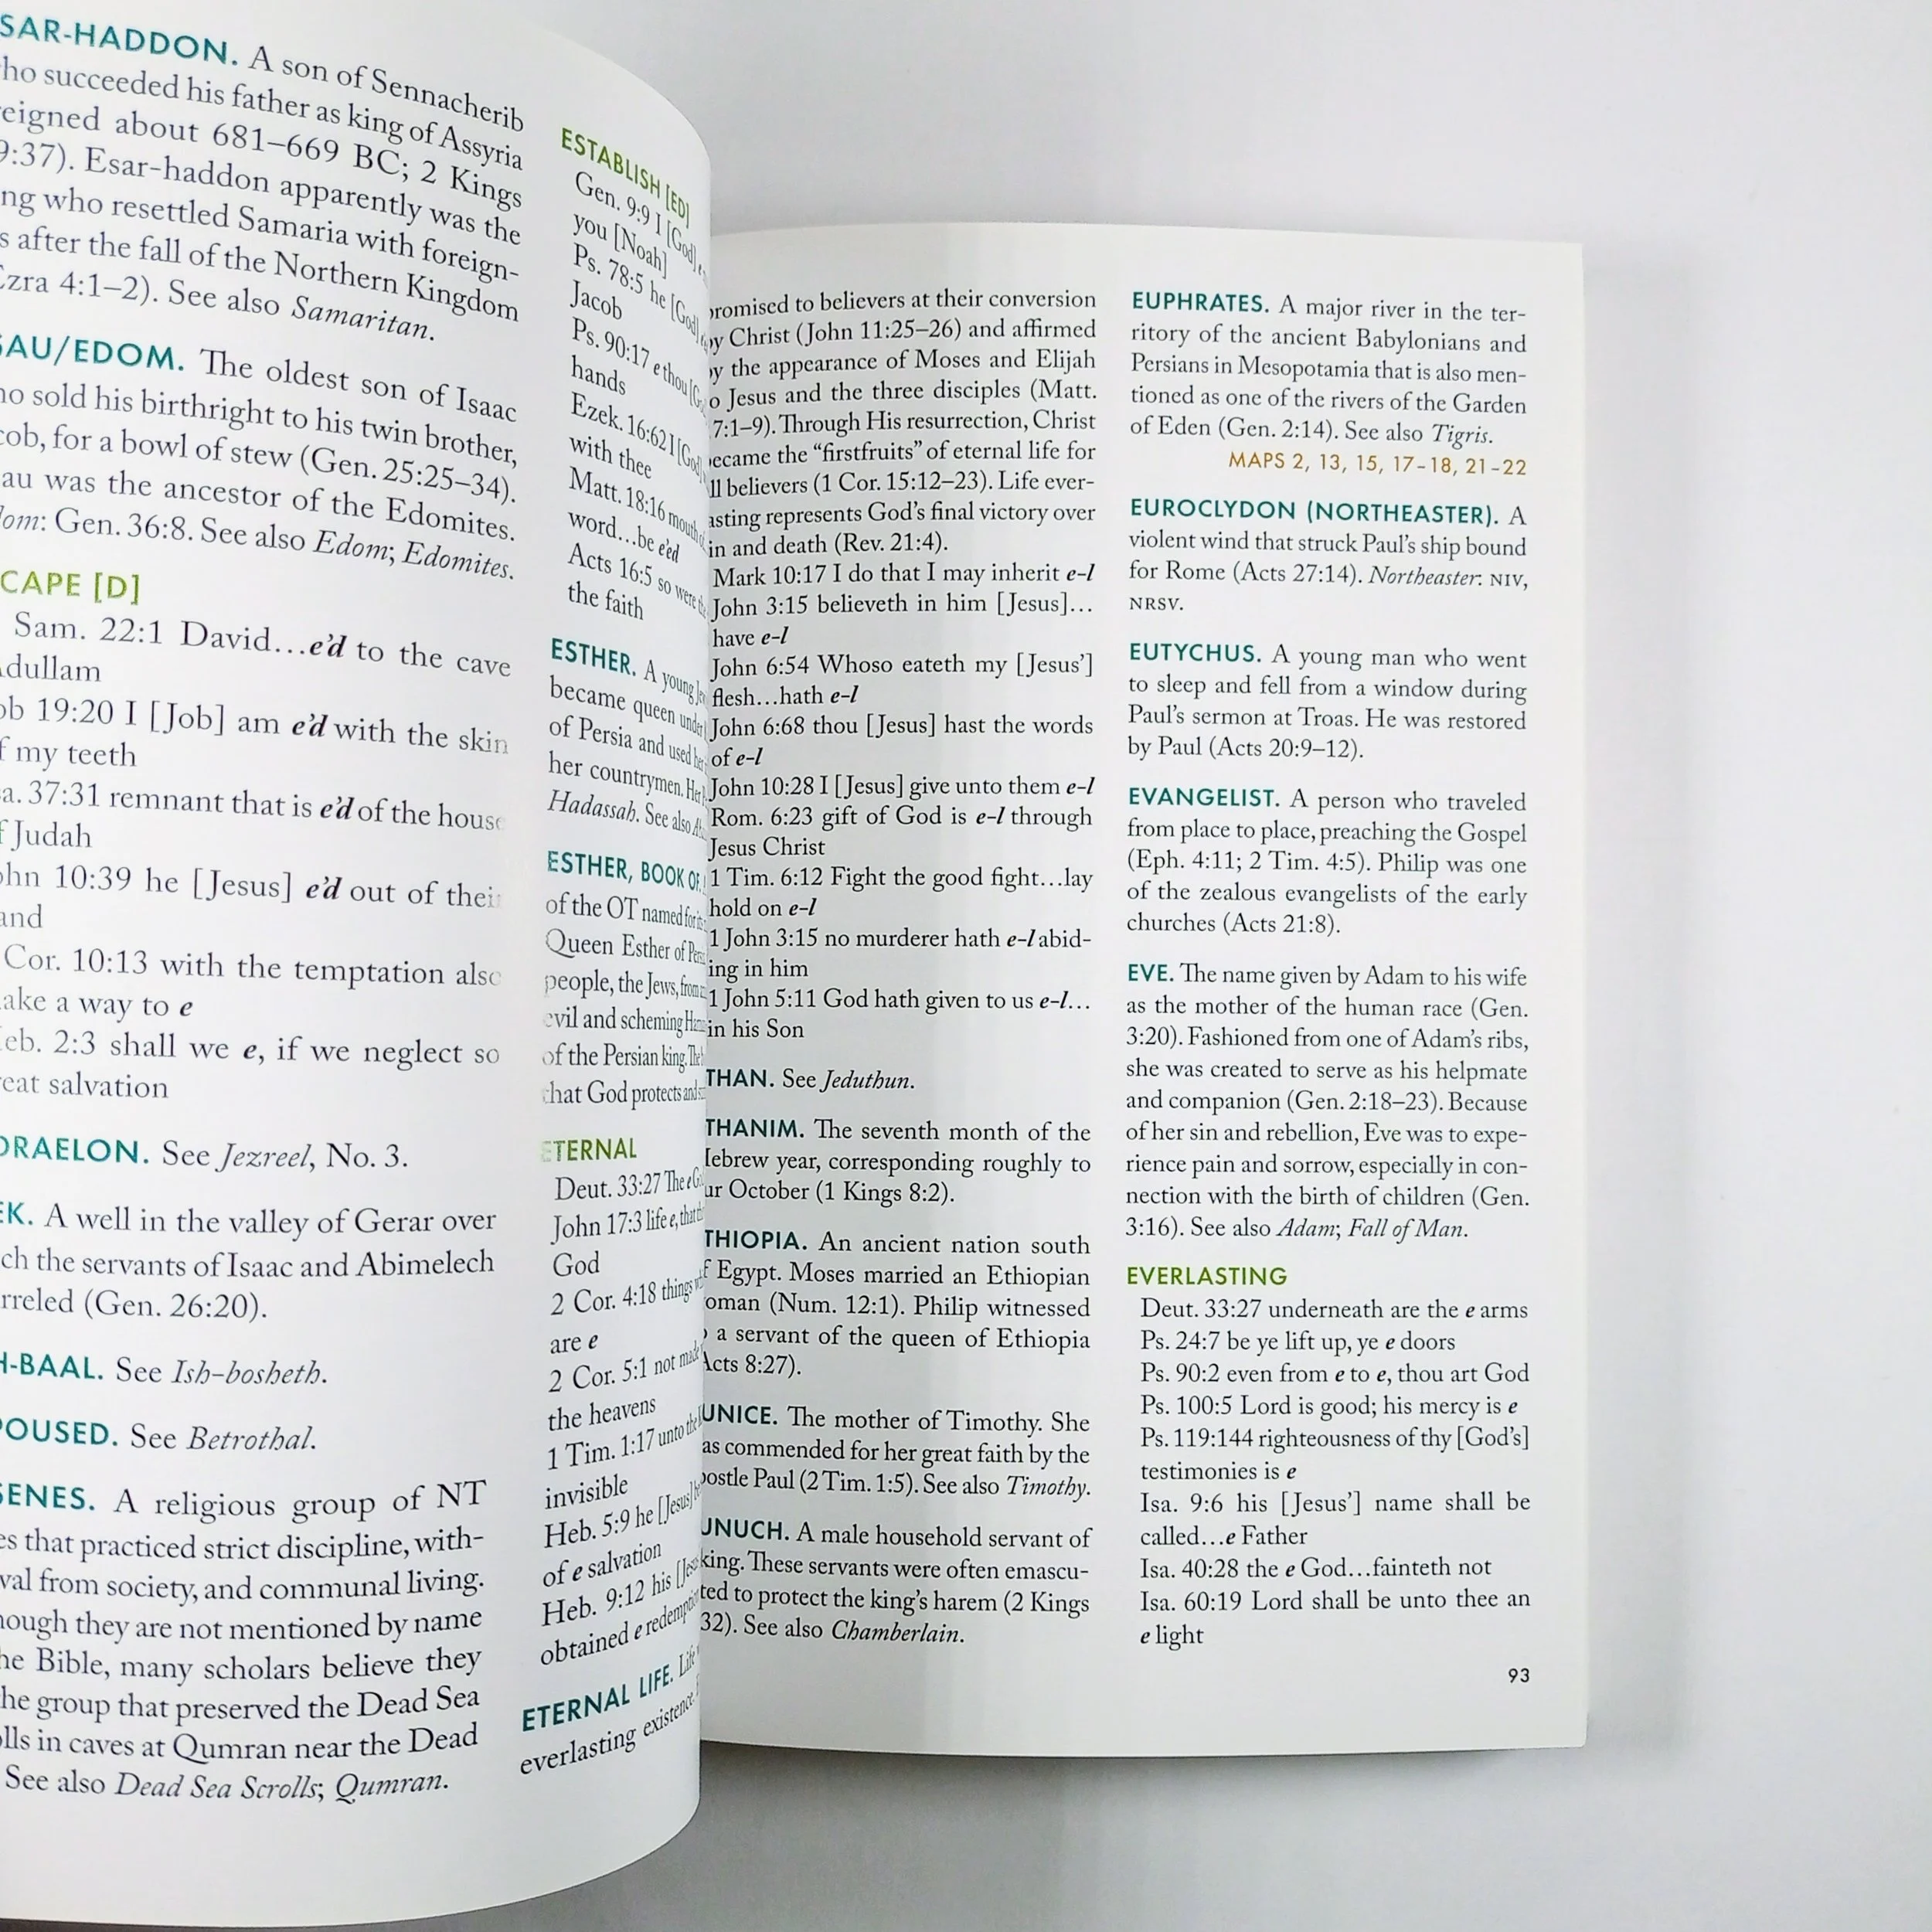 SAR-HADDON. A son of Sennacherib
ho succeeded his father as king of Assyria
eigned about 681–669 BC; 2 Kings
9:37). Esar-haddon apparently was the
ng who resettled Samaria with foreign-
s after the fall of the Northern Kingdom
Ezra 4:1–2). See also Samaritan.
SAU/EDOM. The oldest son of Isaac
ho sold his birthright to his twin brother,
cob, for a bowl of stew (Gen. 25:25–34).
au was the ancestor of the Edomites.
dom: Gen. 36:8. See also Edom; Edomites.
CAPE [D]
Sam. 22:1 David…e'd to the cave
Adullam
ob 19:20 I [Job] am e'd with the skin
f my teeth
a. 37:31 remnant that is e'd of the house
f Judah
ohn 10:39 he [Jesus] e'd out of their
and
Cor. 10:13 with the temptation also
ake a way to e
eb. 2:3 shall we e, if we neglect so
eat salvation
DRAELON. See Jezreel, No. 3.
EK. A well in the valley of Gerar over
ch the servants of Isaac and Abimelech
rreled (Gen. 26:20).
H-BAAL. See Ish-bosheth.
POUSED. See Betrothal.
SENES. A religious group of NT
es that practiced strict discipline, with-
val from society, and communal living.
hough they are not mentioned by name
he Bible, many scholars believe they
he group that preserved the Dead Sea
olls in caves at Qumran near the Dead
See also Dead Sea Scrolls; Qumran.
ESTABLISH [ED]
Gen. 9:9 I [God] e
you [Noah]
Ps. 78:5 he [God]
Jacob
Ps. 90:17 e thou
hands
Ezek. 16:62 I [God]
with thee
Matt. 18:16 mouth of
word…be e'ed
Acts 16:5 so were
the faith
ESTHER. A young
became queen under
of Persia and used her
her countrymen. Her
Hadassah. See also
ESTHER, BOOK OF.
of the OT named for its
Queen Esther of
people, the Jews, from
evil and scheming
of the Persian king. The
that God protects and
ETERNAL
Deut. 33:27 The e
John 17:3 life e, that
God
2 Cor. 4:18 things
are e
2 Cor. 5:1 not made
the heavens
1 Tim. 1:17 unto the
invisible
Heb. 5:9 he [Jesus]
of e salvation
Heb. 9:12 his
obtained e redemption
ETERNAL LIFE. Life
everlasting existence.
romised to believers at their conversion
y Christ (John 11:25–26) and affirmed
y the appearance of Moses and Elijah
o Jesus and the three disciples (Matt.
7:1–9). Through His resurrection, Christ
ecame the “firstfruits” of eternal life for
ll believers (1 Cor. 15:12–23). Life ever-
asting represents God's final victory over
in and death (Rev. 21:4).
Mark 10:17 I do that I may inherit e-l
John 3:15 believeth in him [Jesus]…
have e-l
John 6:54 Whoso eateth my [Jesus']
flesh…hath e-l
John 6:68 thou [Jesus] hast the words
of e-l
John 10:28 I [Jesus] give unto them e-l
Rom. 6:23 gift of God is e-l through
Jesus Christ
1 Tim. 6:12 Fight the good fight…lay
hold on e-l
1 John 3:15 no murderer hath e-l abid-
ing in him
1 John 5:11 God hath given to us e-l…
in his Son
THAN. See Jeduthun.
THANIM. The seventh month of the
Hebrew year, corresponding roughly to
ur October (1 Kings 8:2).
THIOPIA. An ancient nation south
f Egypt. Moses married an Ethiopian
oman (Num. 12:1). Philip witnessed
a servant of the queen of Ethiopia
Acts 8:27).
UNICE. The mother of Timothy. She
as commended for her great faith by the
postle Paul (2 Tim. 1:5). See also Timothy.
UNUCH. A male household servant of
king. These servants were often emascu-
ted to protect the king's harem (2 Kings
32). See also Chamberlain.
EUPHRATES. A major river in the ter-
ritory of the ancient Babylonians and
Persians in Mesopotamia that is also men-
tioned as one of the rivers of the Garden
of Eden (Gen. 2:14). See also Tigris.
MAPS 2, 13, 15, 17-18, 21-22
EUROCLYDON (NORTHEASTER). A
violent wind that struck Paul's ship bound
for Rome (Acts 27:14). Northeaster: NIV,
NRSV.
EUTYCHUS. A young man who went
to sleep and fell from a window during
Paul's sermon at Troas. He was restored
by Paul (Acts 20:9–12).
EVANGELIST. A person who traveled
from place to place, preaching the Gospel
(Eph. 4:11; 2 Tim. 4:5). Philip was one
of the zealous evangelists of the early
churches (Acts 21:8).
EVE. The name given by Adam to his wife
as the mother of the human race (Gen.
3:20). Fashioned from one of Adam's ribs,
she was created to serve as his helpmate
and companion (Gen. 2:18–23). Because
of her sin and rebellion, Eve was to expe-
rience pain and sorrow, especially in con-
nection with the birth of children (Gen.
3:16). See also Adam; Fall of Man.
EVERLASTING
Deut. 33:27 underneath are the e arms
Ps. 24:7 be ye lift up, ye e doors
Ps. 90:2 even from e to e, thou art God
Ps. 100:5 Lord is good; his mercy is e
Ps. 119:144 righteousness of thy [God's]
testimonies is e
Isa. 9:6 his [Jesus'] name shall be
called…e Father
Isa. 40:28 the e God…fainteth not
Isa. 60:19 Lord shall be unto thee an
e light
93